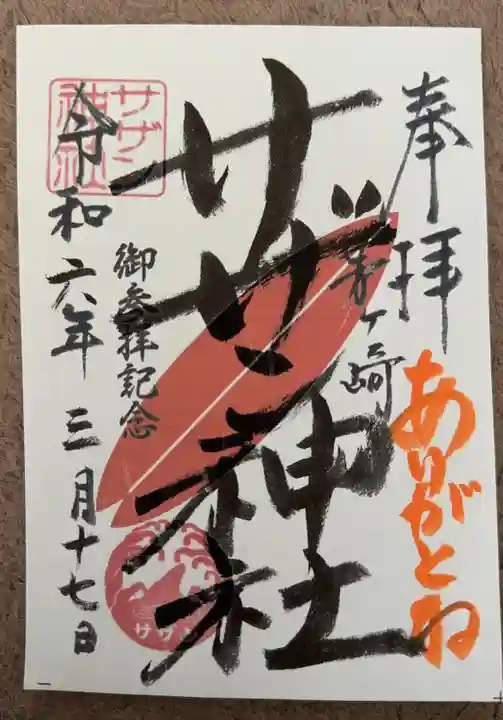 奉拝
茅ヶ崎
ありがとね
サザン神社
御参拝記念
令和六年三月十七日
サザン
神社
サザン